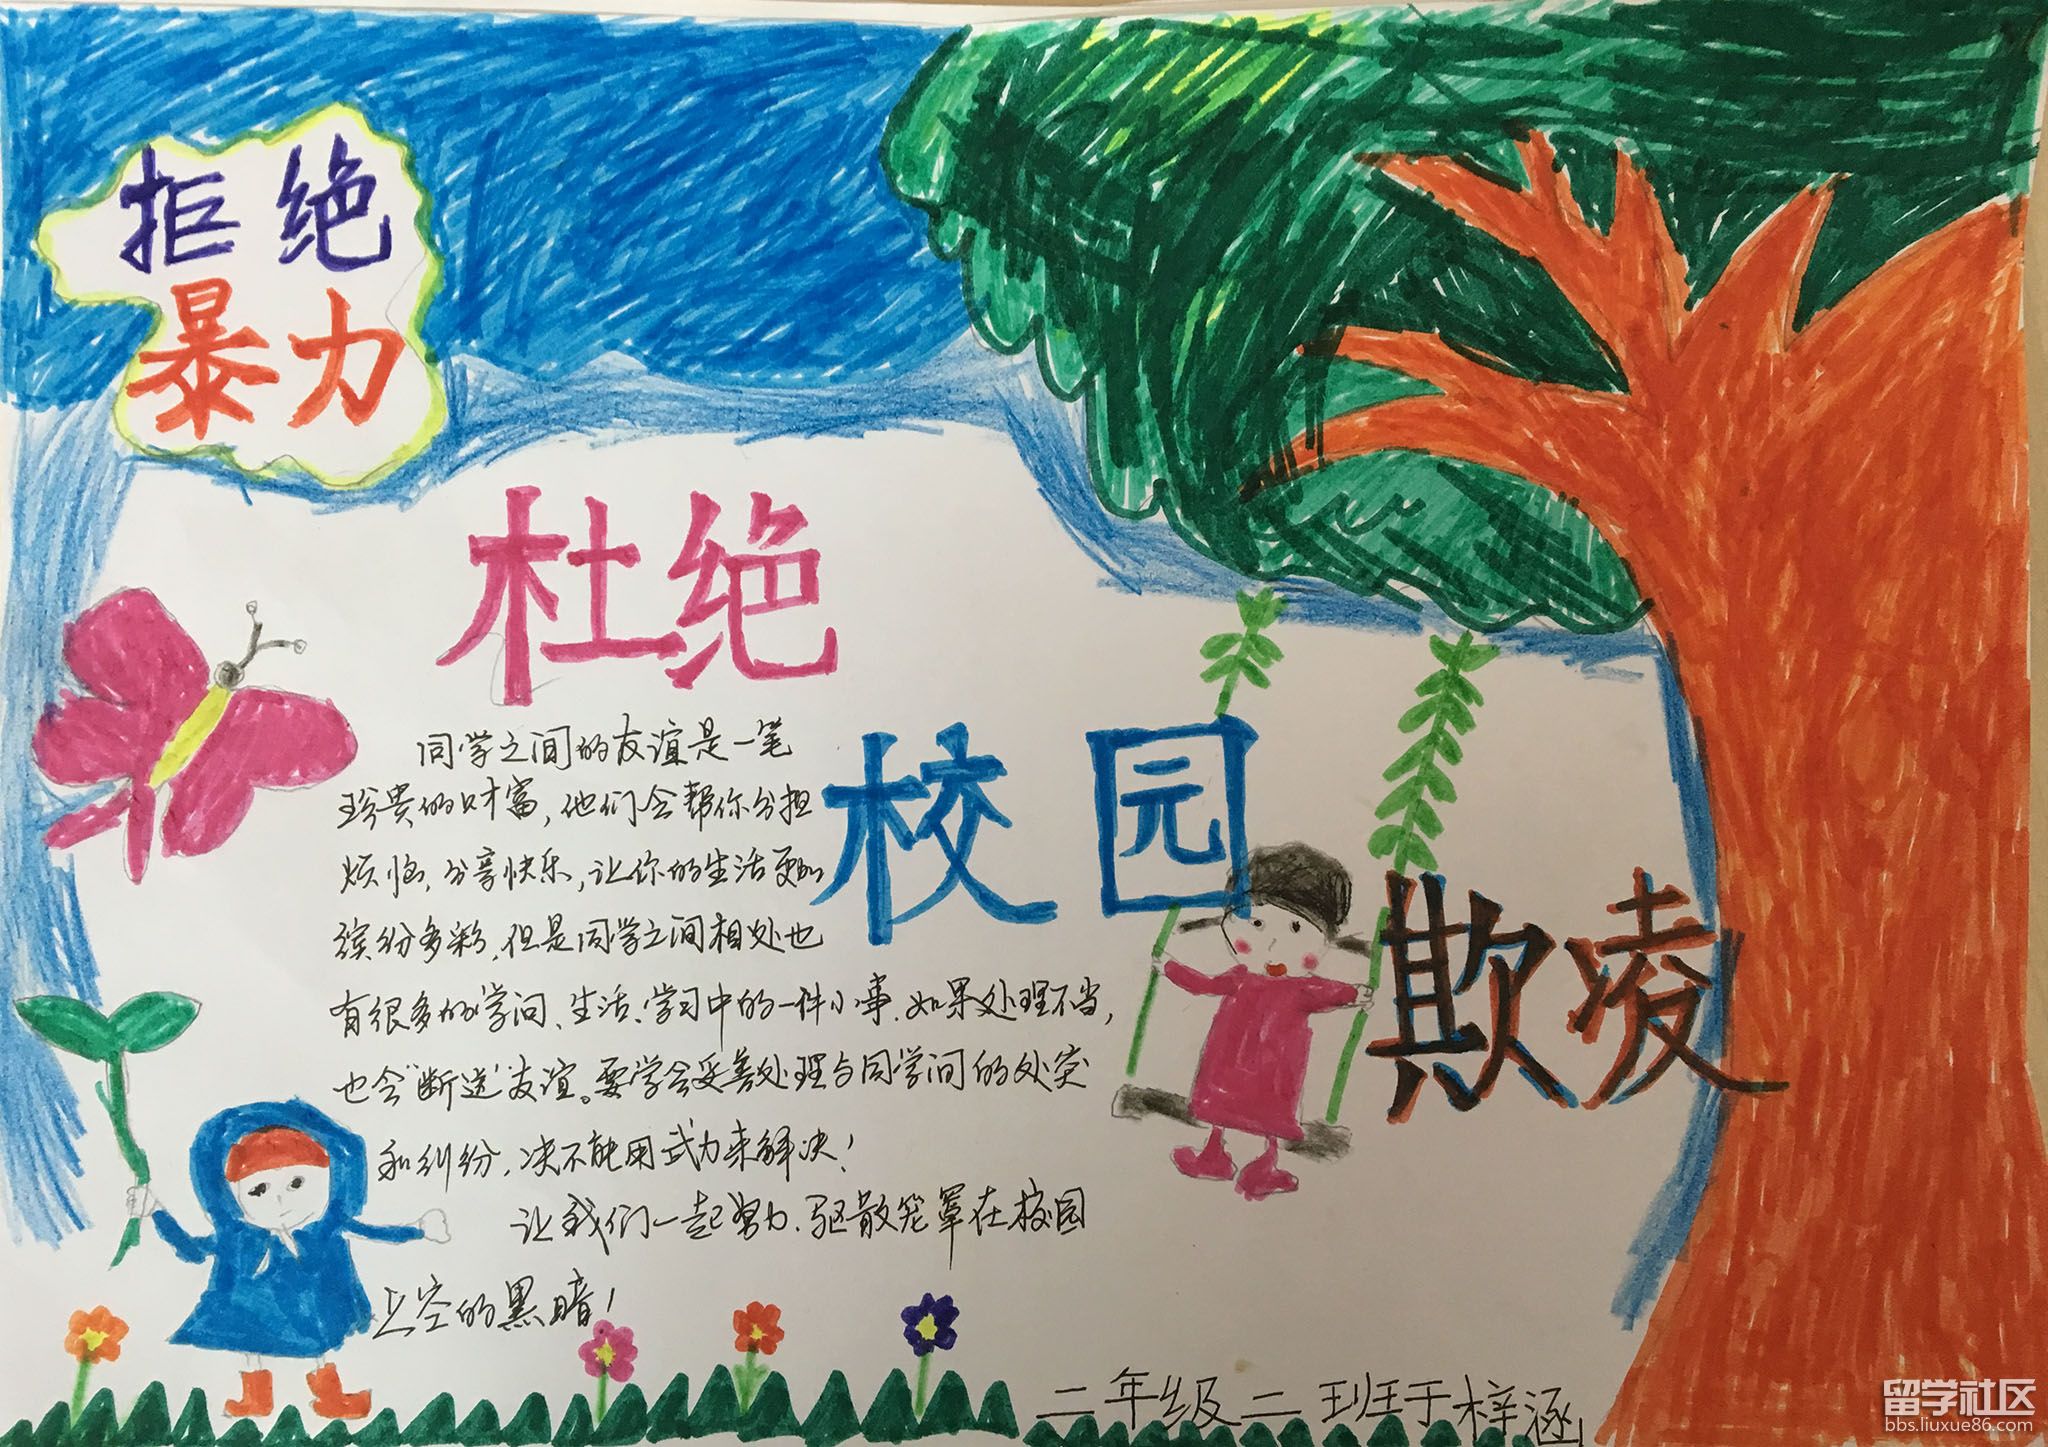 拒绝
暴力
杜绝
校园
欺凌
同学之间的友谊是一笔
珍贵的财富，他们会帮你分担
烦恼，分享快乐，让你的生活更加
缤纷多彩，但是同学之间相处也
有很多的学问、生活、学习中的一件小事，如果处理不当，
也会“断送”友谊。要学会妥善处理与同学间的处突
和纠纷，决不能用武力来解决！
让我们一起努力，驱散笼罩在校园
上空的黑暗！
二年级二班于梓涵
留学社区
bbs.liuxue86.com